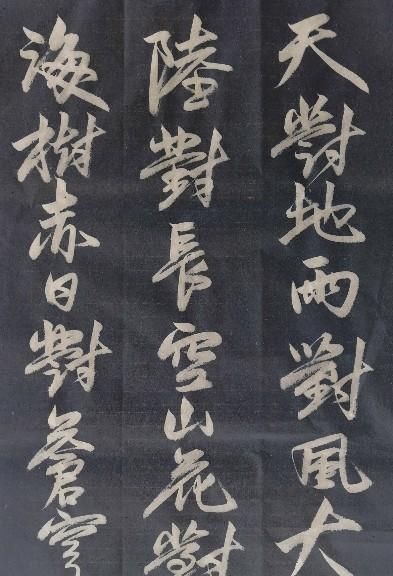 天對地雨對風大
陸對長空山花對
海樹赤日對蒼穹